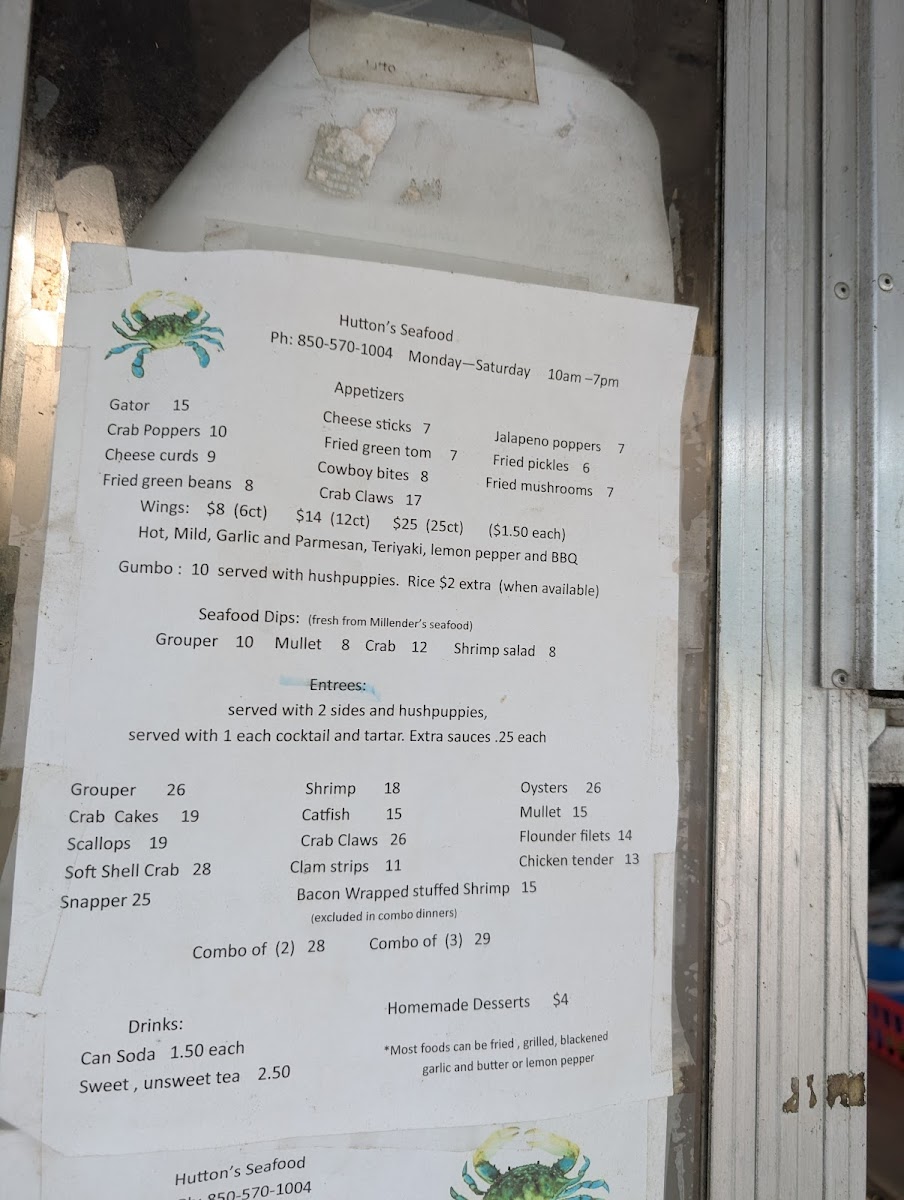 Hutton's Seafood
Ph: 850-570-1004 Monday—Saturday 10am –7pm
Appetizers
Gator 15 Cheese sticks 7 Jalapeno poppers 7
Crab Poppers 10 Fried green tom 7 Fried pickles 6
Cheese curds 9 Cowboy bites 8 Fried mushrooms 7
Fried green beans 8 Crab Claws 17
Wings: $8 (6ct) $14 (12ct) $25 (25ct) ($1.50 each)
Hot, Mild, Garlic and Parmesan, Teriyaki, lemon pepper and BBQ
Gumbo : 10 served with hushpuppies. Rice $2 extra (when available)
Seafood Dips: (fresh from Millender's seafood)
Grouper 10 Mullet 8 Crab 12 Shrimp salad 8
Entrees:
served with 2 sides and hushpuppies,
served with 1 each cocktail and tartar. Extra sauces .25 each
Grouper 26 Shrimp 18 Oysters 26
Crab Cakes 19 Catfish 15 Mullet 15
Scallops 19 Crab Claws 26 Flounder filets 14
Soft Shell Crab 28 Clam strips 11 Chicken tender 13
Snapper 25 Bacon Wrapped stuffed Shrimp 15
(excluded in combo dinners)
Combo of (2) 28 Combo of (3) 29
Homemade Desserts $4
Drinks:
Can Soda 1.50 each
Sweet , unsweet tea 2.50
*Most foods can be fried , grilled, blackened
garlic and butter or lemon pepper
Hutton's Seafood
Ph: 850-570-1004